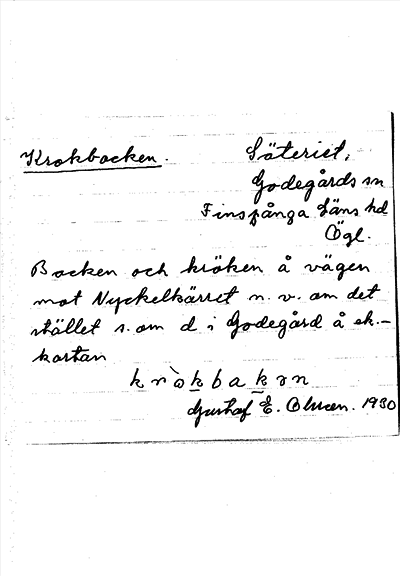 Krokbacken.
Säteriet,
Godegårds sn
Finspånga Läns hd
Ögl.
Backen och kröken å vägen
mot Nyckelkärret n. v. om det
stället s. om d i Godegård å ek.-
kartan
Gustaf E. Olsson. 1930